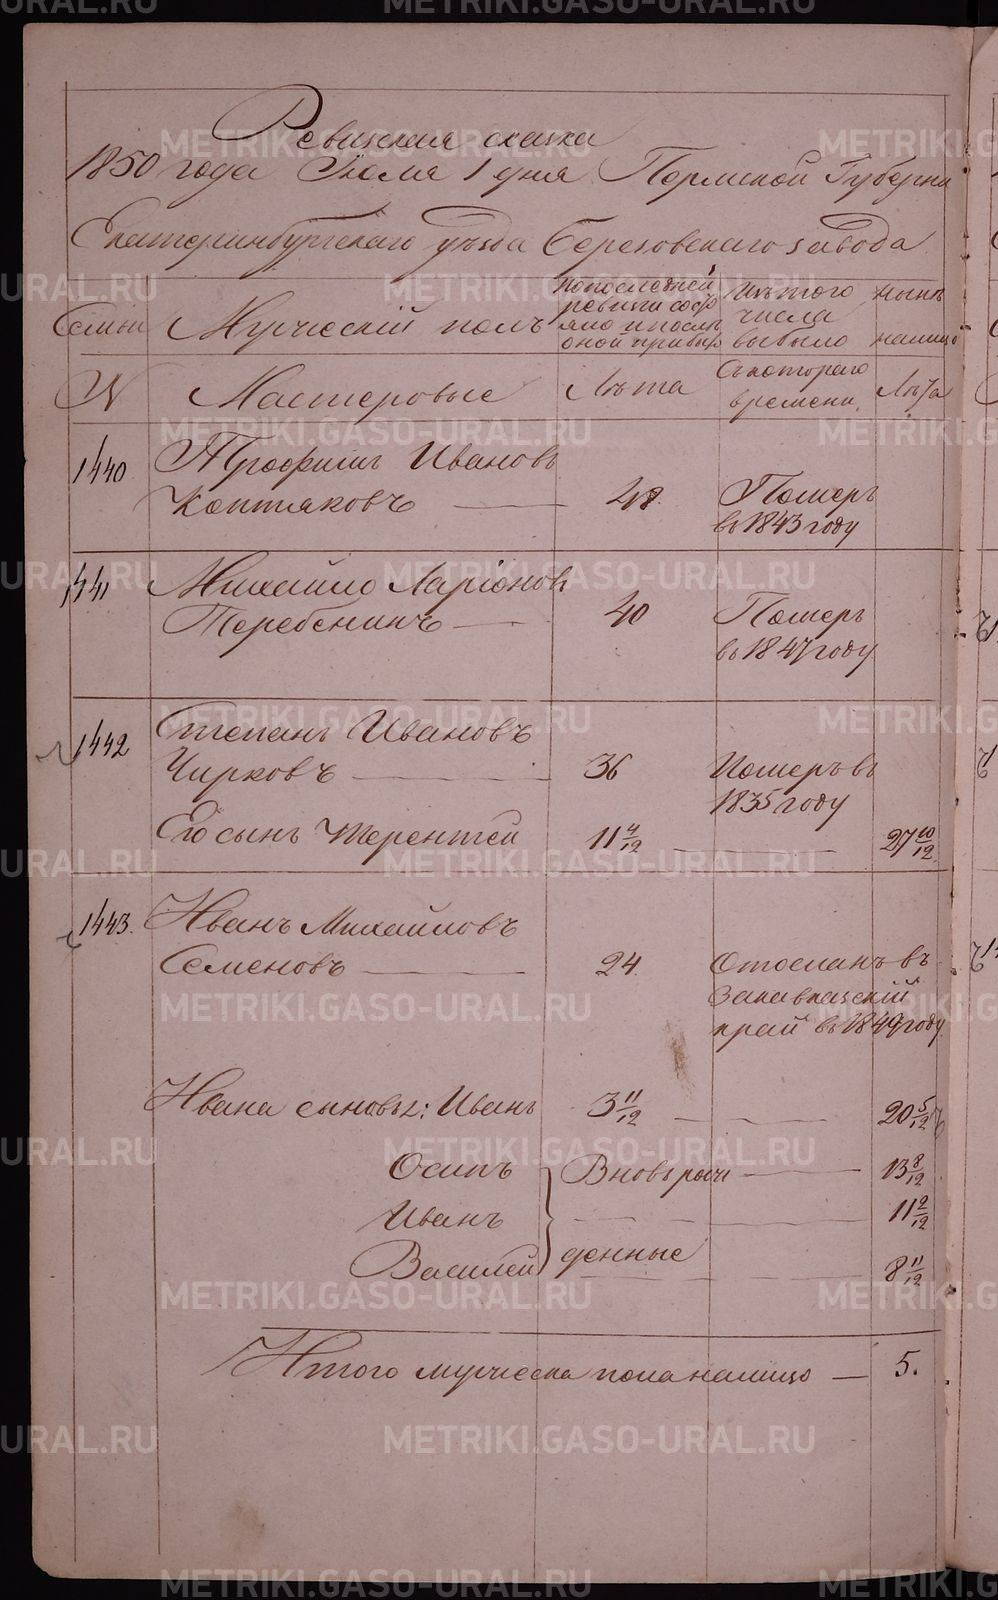 Ревизская сказка
1850 года Іюля 1 дня Пермской Губерни
Екатеринбургскаго уѣзда Березовскаго завода
Семьи
Мужескій полъ
по последней ревизіи состояло и послѣ оной прибыло
Изъ того числа выбыло
нынѣ налицо
N
Мастеровые
Лѣта
Съ котораго времени
Лѣта
1440
Трофимъ Ивановъ
Коптяковъ — 48 Померъ
въ 1843 году
1441
Михайло Ларіоновъ
Теребенинъ — 40 Померъ
въ 1847 году
1442
Степанъ Ивановъ
Чирковъ — 36 Померъ въ
1835 году
Его сынъ Терентей 11 4/12 — 27 10/12
1443.
Иванъ Михайловъ
Семеновъ — 24 Отосланъ въ
Закавказскій
край въ 1849 году
Ивана сыновья: Иванъ 3 11/12 — 20 5/12
Осипъ Вновь рож — 13 8/12
Иванъ — 11 2/12
Василей денные — 8 11/12
Итого мужеска пола налицо — 5.
METRIKI.GASO-URAL.RU